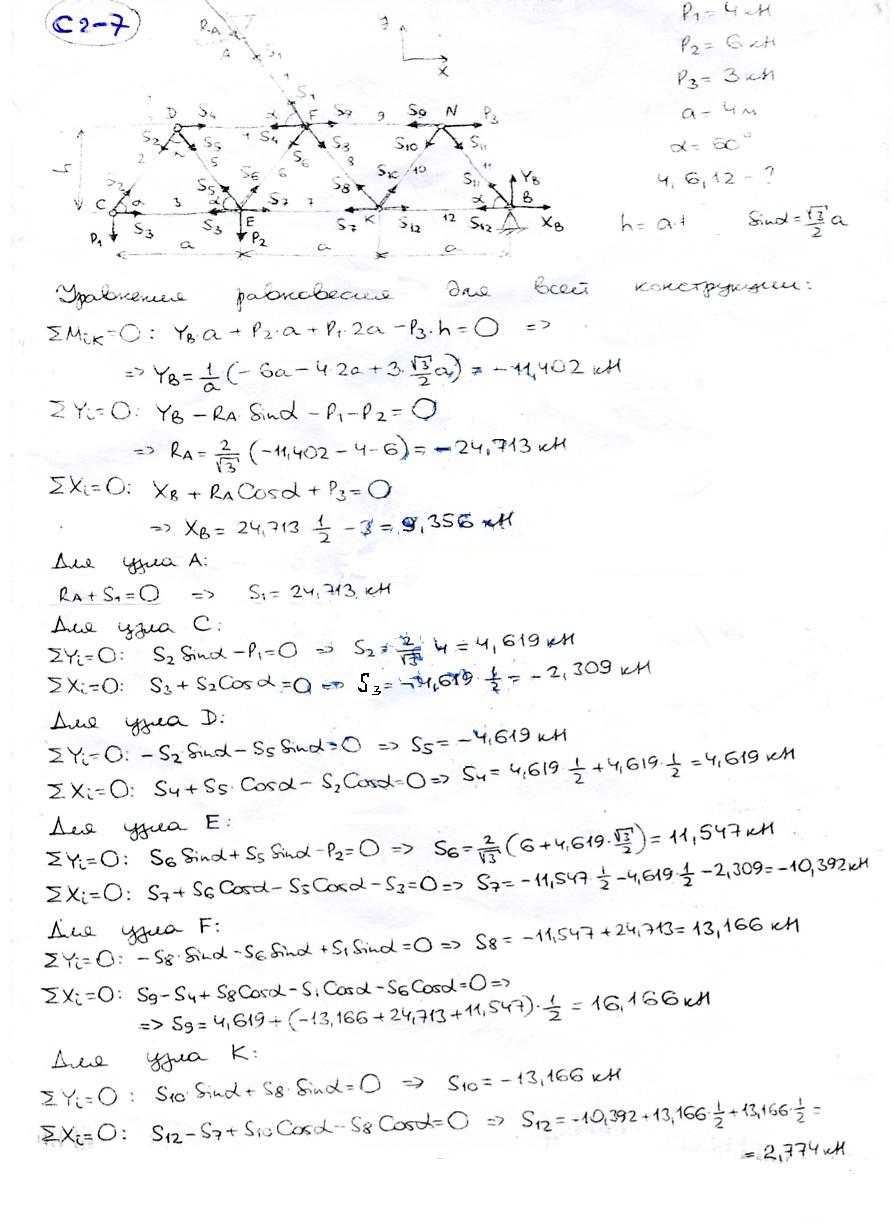 С2-7
P₁ = 4 кН
P₂ = 6 кН
P₃ = 3 кН
a = 4 м
α = 60°
4, 6, 12 - ?
h = a·
Sinα = √3/2 a
y
x
RA
A
S₁
1
S₁
D S₄ α F S₉ 9 S₉ N P₃
S₂ S₅ S₄ S₆ S₈ S₁₀ S₁₁
2 5 6 8 10 11
h
S₂ S₅ S₆ S₈ S₁₀ S₁₁ YB
C α 3 α S₇ 7 K 12 α B
P₁ S₃ S₃ E P₂ S₇ S₁₂ S₁₂ XB
a a a
Уравнения равновесия для всей конструкции:
ΣMiK=0: YB·a + P₂·a + P₁·2a − P₃·h = 0 =>
=> YB = 1/a (−6a − 4·2a + 3·√3/2 a) = −11,402 кН
ΣYi=0: YB − RA·Sinα − P₁ − P₂ = 0
=> RA = 2/√3 (−11,402 − 4 − 6) = −24,713 кН
ΣXi=0: XB + RACosα + P₃ = 0
=> XB = 24,713 1/2 − 3 = 9,356 кН
Для узла A:
RA + S₁ = 0 => S₁ = 24,713 кН
Для узла C:
ΣYi=0: S₂ Sinα − P₁ = 0 => S₂ = 2/√3 4 = 4,619 кН
ΣXi=0: S₃ + S₂Cosα = 0 => S₃ = −4,619·1/2 = −2,309 кН
Для узла D:
ΣYi=0: −S₂ Sinα − S₅ Sinα = 0 => S₅ = −4,619 кН
ΣXi=0: S₄ + S₅·Cosα − S₂Cosα = 0 => S₄ = 4,619·1/2 + 4,619·1/2 = 4,619 кН
Для узла E:
ΣYi=0: S₆ Sinα + S₅ Sinα − P₂ = 0 => S₆ = 2/√3 (6 + 4,619·√3/2) = 11,547 кН
ΣXi=0: S₇ + S₆ Cosα − S₅Cosα − S₃ = 0 => S₇ = −11,547·1/2 − 4,619·1/2 − 2,309 = −10,392 кН
Для узла F:
ΣYi=0: −S₈·Sinα − S₆ Sinα + S₁ Sinα = 0 => S₈ = −11,547 + 24,713 = 13,166 кН
ΣXi=0: S₉ − S₄ + S₈Cosα − S₁Cosα − S₆Cosα = 0 =>
=> S₉ = 4,619 + (−13,166 + 24,713 + 11,547)·1/2 = 16,166 кН
Для узла K:
ΣYi=0: S₁₀·Sinα + S₈·Sinα = 0 => S₁₀ = −13,166 кН
ΣXi=0: S₁₂ − S₇ + S₁₀Cosα − S₈Cosα = 0 => S₁₂ = −10,392 + 13,166·1/2 + 13,166·1/2 =
= 2,774 кН